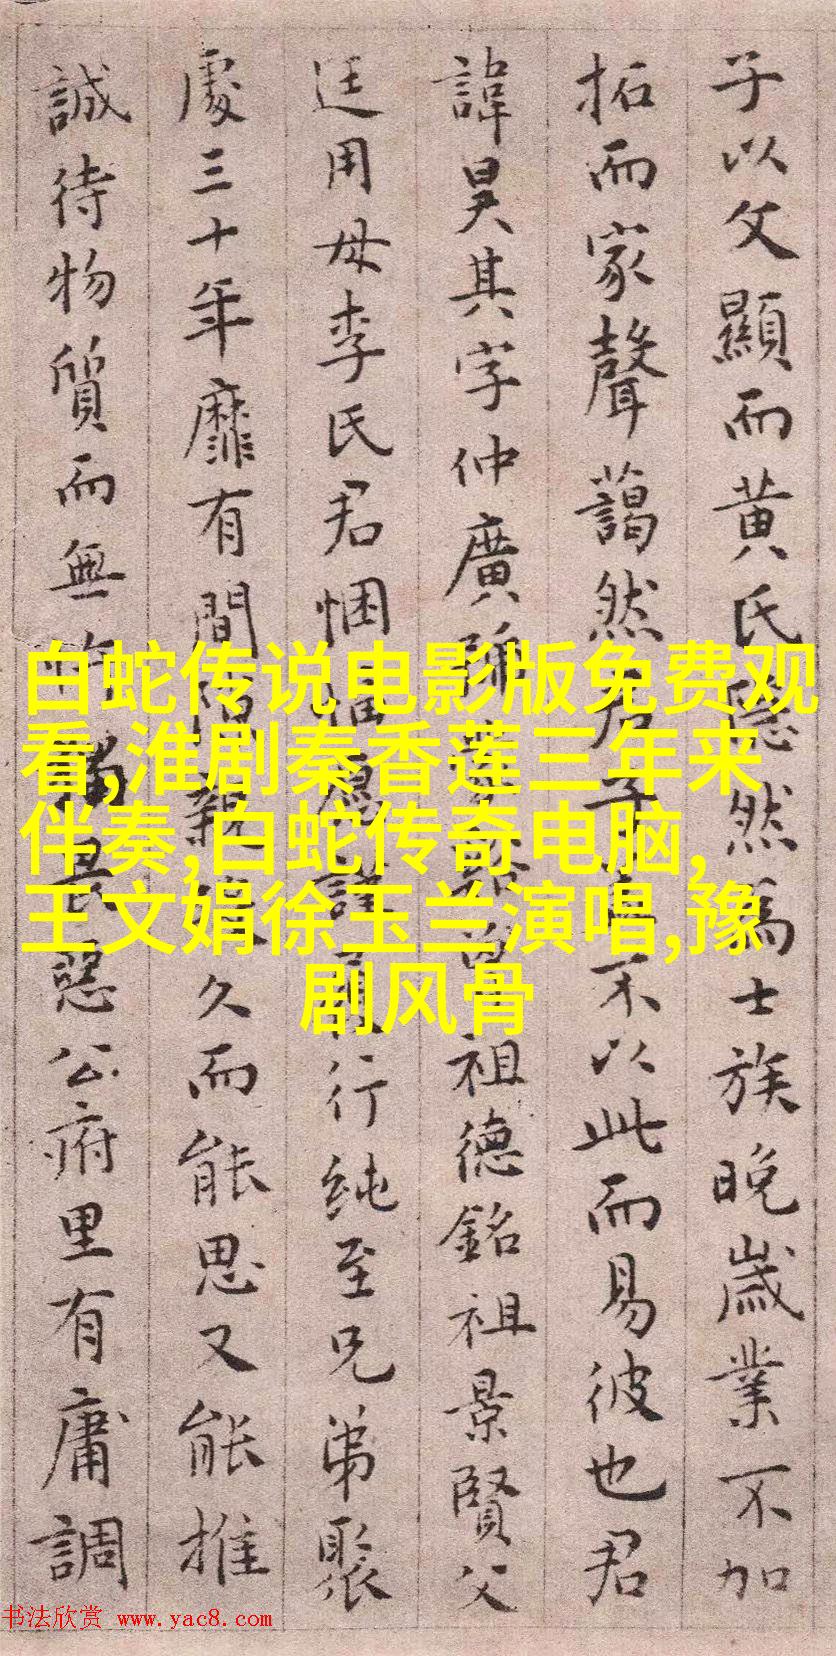 子以文顯而黃氏隱然爲士族晚歲業不加
拓而家聲藹然君子不以此而易彼也君
諱昊其字仲廣祖德銘祖景賢父
廷用母李氏君悃愊爲謹行純至兄弟聚
處三十年靡有間親久而能思又能推
誠待物質而無忤畏惡公府里有庸調
白蛇传说电影版免费观
看,淮剧秦香莲三年来
伴奏,白蛇传奇电脑,
王文娟徐玉兰演唱,豫
剧风骨
书法欣赏 www.yac8.com